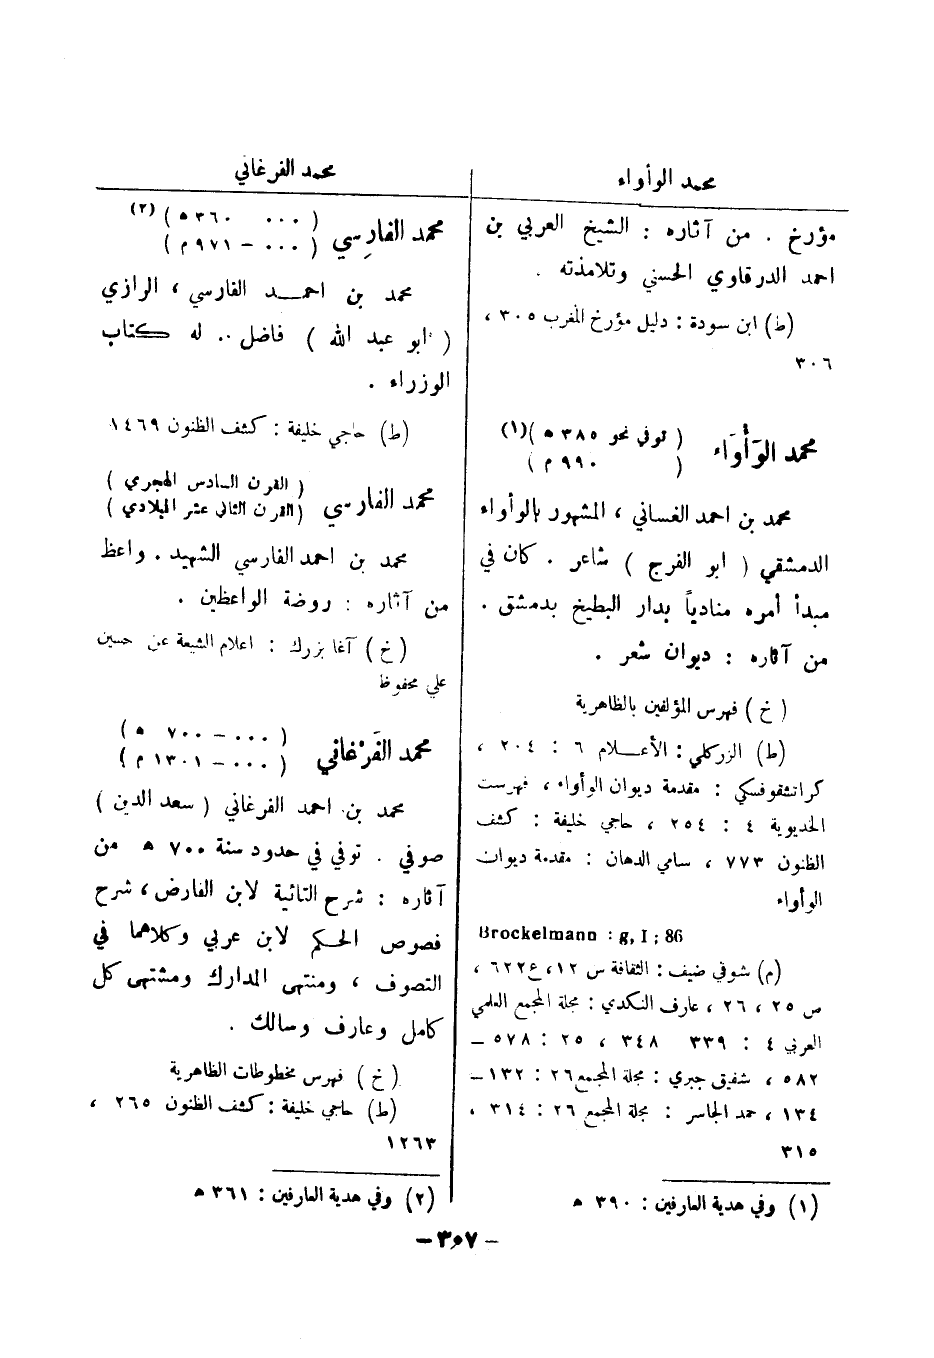 محمد الوأواء
مؤرخ . من آثاره : الشيخ العربي بن
احمد الدرقاوي الحسني وتلامذته .
(ط) ابن سودة : دليل مؤرخ المغرب ٣٠٥ ،
٣٠٦
محمد الوَأْوَاء ( توفي نحو ٣٨٥ ه ) (١)
( ٩٩٠ م )
محمد بن احمد الغساني ، المشهور بالوأواء
الدمشقي ( ابو الفرج ) شاعر . كان في
مبدأ أمره منادياً بدار البطيخ بدمشق .
من آثاره : ديوان شعر .
( خ ) فهرس المؤلفين بالظاهرية
(ط) الزركلي : الأعلام ٦ : ٢٠٤ ،
كراتشقوفسكي : مقدمة ديوان الوأواء ، فهرست
الخديوية ٤ : ٢٥٤ ، حاجي خليفة : كشف
الظنون ٧٧٣ ، سامي الدهان : مقدمة ديوان
الوأواء
Brockelmann : g, I ; 86
(م) شوقي ضيف : الثقافة س ١٢، ع ٦٢٢ ،
ص ٢٥ ، ٢٦ ، عارف النكدي : مجلة المجمع العلمي
العربي ٤ : ٣٣٩ ٣٤٨ ، ٢٥ : ٥٧٨ –
٥٨٢ ، شفيق جبري : مجلة المجمع ٢٦ : ١٣٢ –
١٣٤ ، حمد الجاسر : مجلة المجمع ٢٦ : ٣١٤ ،
٣١٥
(١) وفي هدية العارفين : ٣٩٠ ه
محمد الفرغاني
محمد الفارِسي ( ٠٠٠ ٣٦٠ ه ) (٢)
( ٠٠٠ – ٩٧١ م )
محمد بن احمد الفارسي ، الرازي
( ابو عبد الله ) فاضل .. له كتاب
الوزراء .
(ط) حاجي خليفة : كشف الظنون ١٤٦٩
محمد الفارسي ( القرن السادس الهجري )
( القرن الثاني عشر الميلادي )
محمد بن احمد الفارسي الشهيد . واعظ
من آثاره : روضة الواعظين .
( خ ) آغا بزرك : اعلام الشيعة عن حسين
علي محفوظ
محمد الفَرْغاني ( ٠٠٠ – ٧٠٠ ه )
( ٠٠٠ – ١٣٠١ م )
محمد بن احمد الفرغاني ( سعد الدين )
صوفي . توفي في حدود سنة ٧٠٠ ه من
آثاره : شرح التائية لابن الفارض ، شرح
فصوص الحكم لابن عربي وكلاهما في
التصوف ، ومنتهى المدارك ومشتهى كل
كامل وعارف وسالك .
( خ ) فهرس مخطوطات الظاهرية
(ط) حاجي خليفة : كشف الظنون ٢٦٥ ،
١٢٦٣
(٢) وفي هدية العارفين : ٣٦١ ه
– ٣٥٧ –